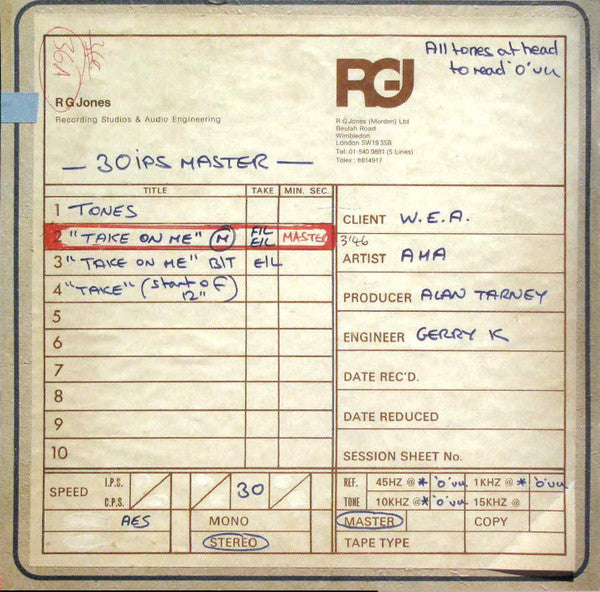 36A
All tones at head
to read 'O' vu
RGJ
RGJones
Recording Studios & Audio Engineering
R G Jones (Morden) Ltd
Beulah Road
Wimbledon
London SW19 3SB
Tel: 01-540 9881 (5 Lines)
Telex: 8814917
— 30 IPS MASTER —
TITLE TAKE MIN. SEC.
1 TONES
2 "TAKE ON ME" (M) E/L E/L MASTER 3'46
3 "TAKE ON ME" B/T E/L
4 "TAKE" (start of 12")
5
6
7
8
9
10
CLIENT W.E.A.
ARTIST AHA
PRODUCER ALAN TARNEY
ENGINEER GERRY K
DATE REC'D.
DATE REDUCED
SESSION SHEET No.
SPEED I.P.S. C.P.S. 30
AES MONO
STEREO
REF. 45HZ @ * 'O' vu 1KHZ @ * 'O' vu
TONE 10KHZ @ * 'O' vu 15KHZ @
MASTER COPY
TAPE TYPE